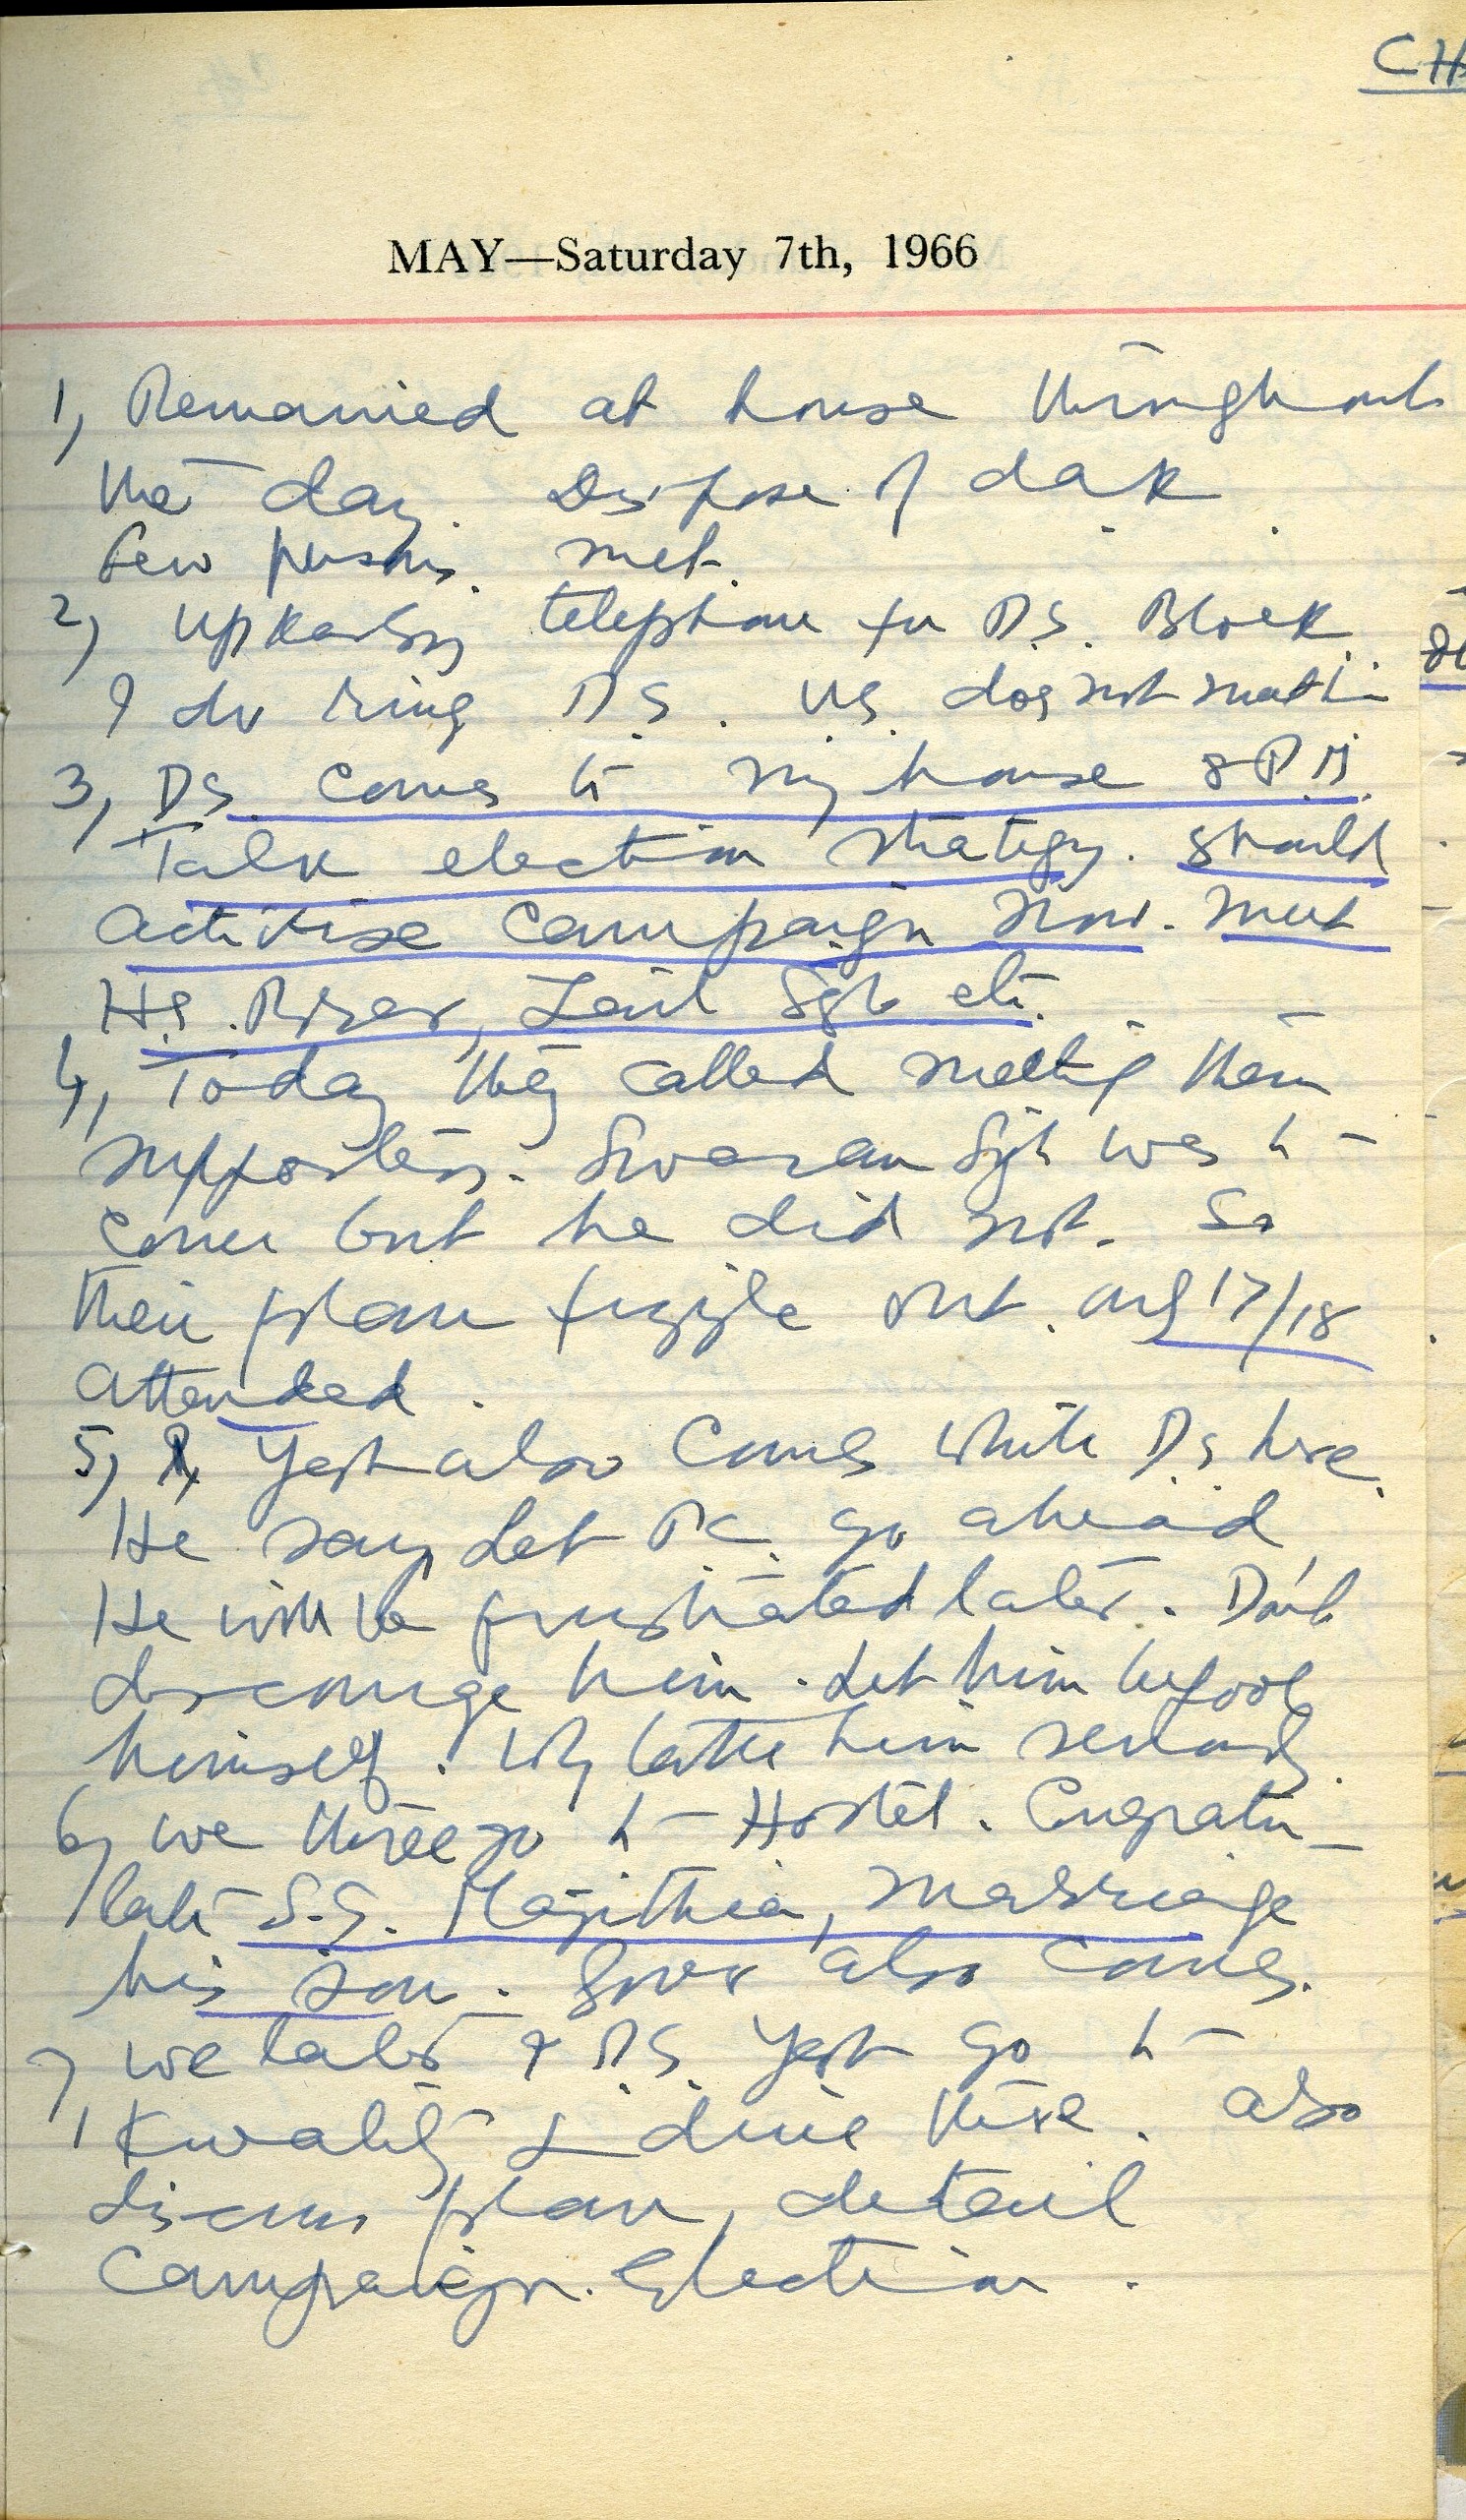 CH
MAY—Saturday 7th, 1966
1, Remained at house throughout
the day. Dispose of dak
few persons. met.
2, telephone for D.S. Block
I do ring D.S. does not
3, D.S. comes to my house 8 P.M.
Talk election strategy. should
activise campaign now. meet
H.S. Zail Sgh etc.
4, Today they called meeting their
supporters. Swaran Sgh was to
come but he did not. So
their plan fizzle out. only 17/18
attended.
5, Yash also comes while D.S. here.
He say, Let P.C. go ahead
He will be frustrated later. Don't
discourage him. Let him befool
himself. Why him
6, we three go to Hostel. Congratu-
late S.S. Majithia, marriage
his son. Gover also comes.
7, we later & D.S. Yash go to
Kwality & dine there. also
discuss plan, detail
campaign. Election.